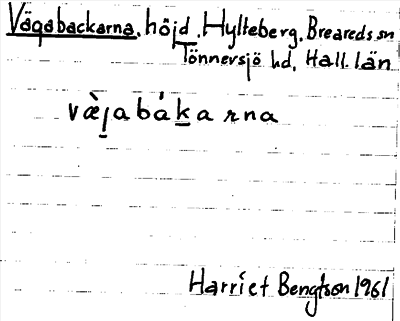 Vägabackarna, höjd, Hylteberg, Breareds sn
Tönnersjö hd, Hall. län
væ̀jabákarna
Harriet Bengtson 1961